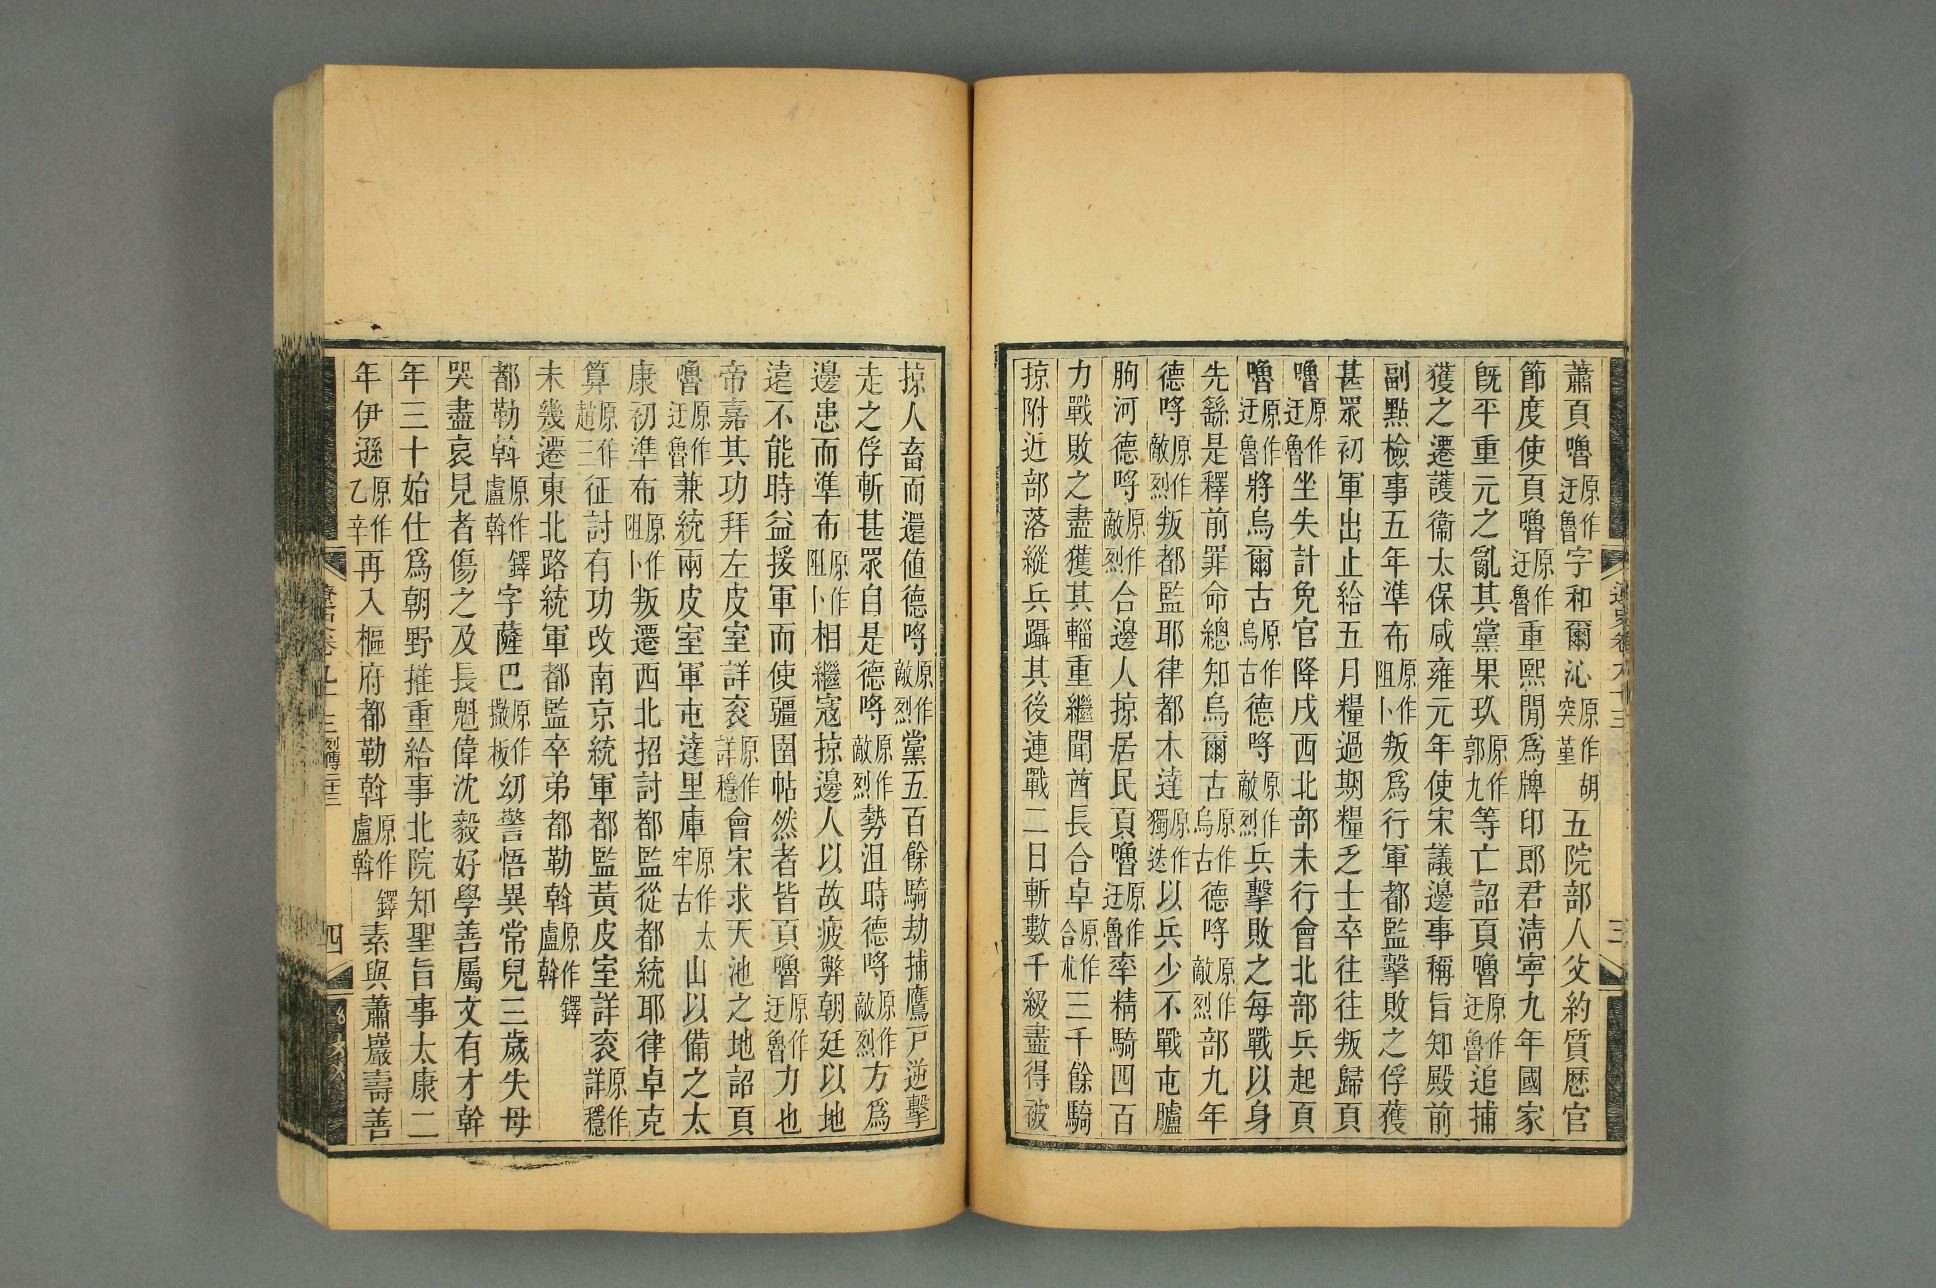 蕭頁嚕原作迂魯字和爾沁原作胡突堇五院部人父約質歷官
節度使頁嚕原作迂魯重熙閒為牌印郎君清寧九年國家
旣平重元之亂其黨果玖原作郭九等亡詔頁嚕原作迂魯追捕
獲之遷護衞太保咸雍元年使宋議邊事稱旨知殿前
副點檢事五年準布原作阻卜叛為行軍都監擊敗之俘獲
甚眾初軍出止給五月糧過期糧乏士卒往往叛歸頁
嚕原作迂魯坐失計免官降戍西北部未行會北部兵起頁
嚕原作迂魯將烏爾古原作烏古德哷原作敵烈兵擊敗之每戰以身
先繇是釋前罪命總知烏爾古原作烏古德哷原作敵烈部九年
德哷原作敵烈叛都監耶律都木達原作獨迭以兵少不戰屯臚
朐河德哷原作敵烈合邊人掠居民頁嚕原作迂魯率精騎四百
力戰敗之盡獲其輜重繼聞酋長合卓原作合朮三千餘騎
掠附近部落縱兵躡其後連戰二日斬數千級盡得被
遼史卷九十三
三
掠人畜而還值德哷原作敵烈黨五百餘騎劫捕鷹戸逆擊
走之俘斬甚眾自是德哷原作敵烈勢沮時德哷原作敵烈方為
邊患而準布原作阻卜相繼寇掠邊人以故疲弊朝廷以地
遠不能時益援軍而使疆圉帖然者皆頁嚕原作迂魯力也
帝嘉其功拜左皮室詳衮原作詳穩會宋求天池之地詔頁
嚕原作迂魯兼統兩皮室軍屯達里庫原作太牢古山以備之太
康初準布原作阻卜叛遷西北招討都監從都統耶律卓克
算原作趙三征討有功改南京統軍都監黃皮室詳衮原作詳穩
未幾遷東北路統軍都監卒弟都勒斡原作鐸盧斡
都勒斡原作鐸盧斡字薩巴原作撒板幼警悟異常兒三歲失母
哭盡哀見者傷之及長魁偉沈毅好學善屬文有才幹
年三十始仕為朝野推重給事北院知聖旨事太康二
年伊遜原作乙辛再入樞府都勒斡原作鐸盧斡素與蕭巖壽善
遼史卷九十三 列傳二十三
四